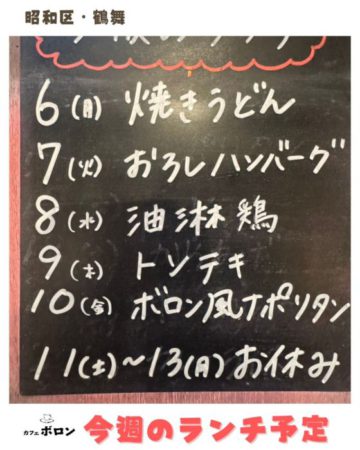 昭和区・鶴舞
6(月) 焼きうどん
7(火) おろしハンバーグ
8(水) 油淋鶏
9(木) トンテキ
10(金) ボロン風ナポリタン
11(土)~13(月) お休み
カフェ ボロン
今週のランチ予定